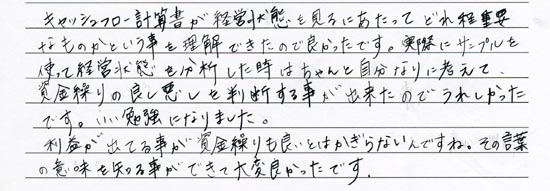 キャッシュフロー計算書が経営状態を見るにあたってどれ程重要
なものかという事を理解できたので良かったです。実際にサンプルを
使って経営状態を分析した時はちゃんと自分なりに考えて、
資金繰りの良し悪しを判断する事が出来たのでうれしかった
です。いい勉強になりました。
利益が出てる事が資金繰りも良いとはかぎらないんですね。その言葉
の意味を知る事ができて大変良かったです。